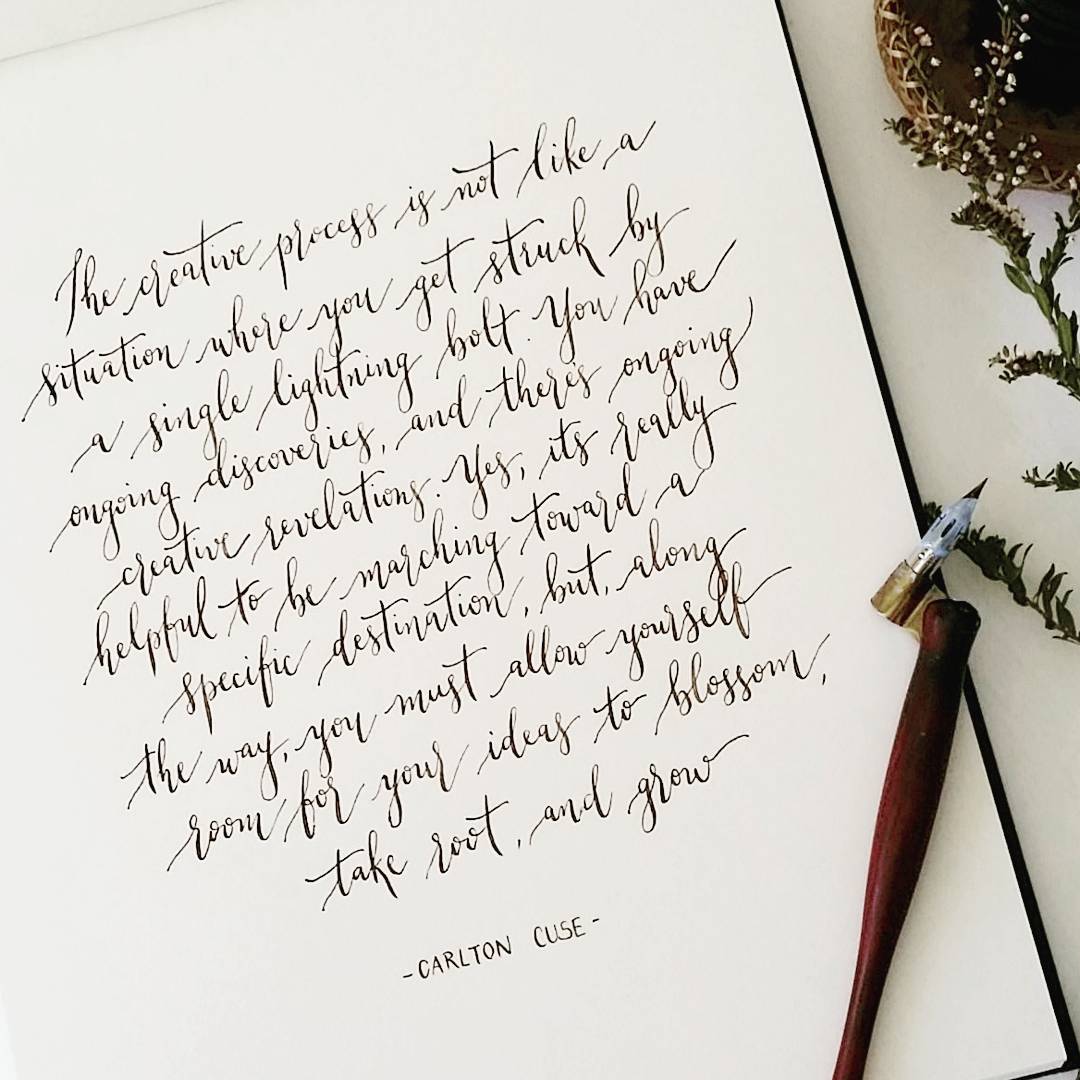 The creative process is not like a
situation where you get struck by
a single lightning bolt. You have
ongoing discoveries, and there's ongoing
creative revelations. Yes, it's really
helpful to be marching toward a
specific destination, but, along
the way, you must allow yourself
room for your ideas to blossom,
take root, and grow
-CARLTON CUSE-